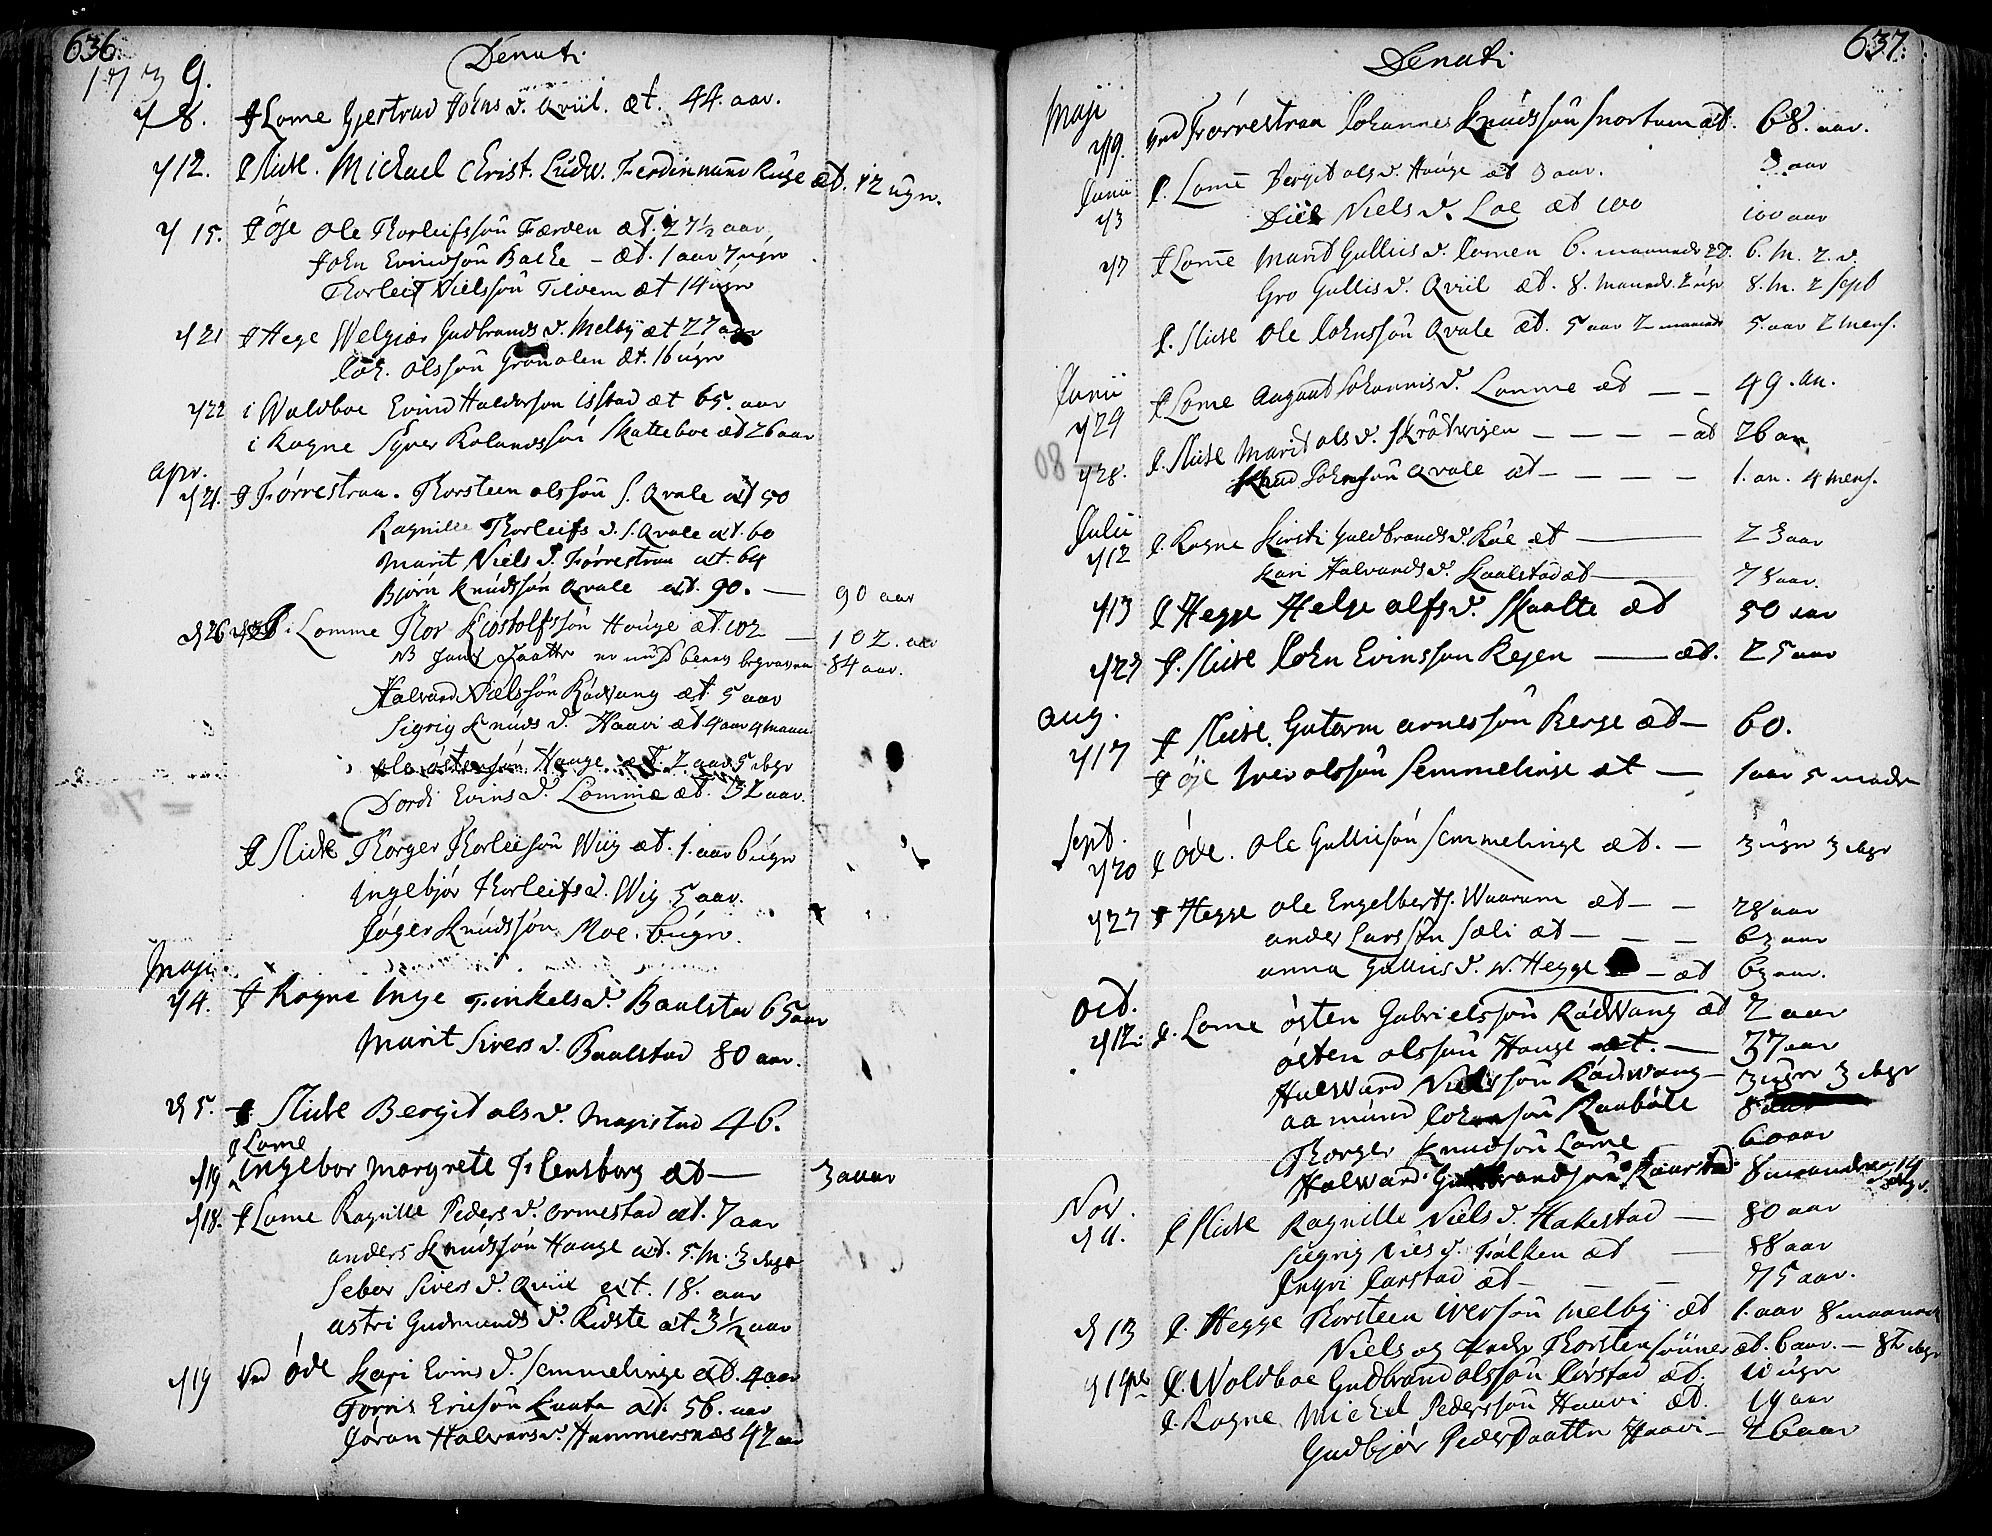 636.
Denati
1739.
d 8. I Lome Gjertrud Johns d. Qviil. æt. 44. aar.
d 12. I Slidre. Michael Christ. Ludw. Ferdinnand Ruge æt. 12 ugr.
d 15. I øje Ole Thorleifssøn Færden æt. 27½ aar
John Evindssøn Bakke - æt. 1 aar 7 ugr
Thorleif Nielssøn Tilvem æt 14 ugr
d 21 I Hege Welgiær Gudbrands d. Melby æt 27 aar
Joh. olssøn Grønolen æt. 16 ugr
d 22 i Woldboe Evind Haldorsøn isstad æt 65. aar
i Rogne Syver Rolandssøn Skatteboe æt 26 aar
apr.
d 21. I Førrestran. Thorsteen olssøn S. Qvale æt 50
Ragnille Thorleifs d. S. Qvale æt. 60
Marit Niels d. Førrestran æt. 64
Bjørn Knudssøn Qvale æt. 90. — 90 aar
d 26 i Lomme Thor Kiøstolfssøn Houge æt. 102 — 102. aar
84 aar.
Halvard Nielssøn Rødvang æt 5 aar
Sigrig Knuds d. Haavi æt 4 aar 4 maan
ole østensøn Hauge æt. 2 aar 5 dgr
Dordi Evins d. Lomme æt. 32 aar.
I Slidre Thorger Thorleifsøn Wiig æt. 1. aar 6 ugr
Ingebjør Thorleifs d. Wiig 5 aar.
Jøger Knudssøn Moe. 6 ugr.
Maji
d 4. I Rogne Inge Finkels d. Baalstad 65 aar
Marit Sivers d. Baalstad 80 aar.
d 5. I Slidre Bergit ols d. Magistad 46.
I Lome
d 19 Ingebor Margrete Flensborg æt — 3 aaar
d 18. I Lome Ragnille Peders d. Ormestad æt. 7 aar
anders Knudssøn Hauge æt. 5. M. 3 dage
Sebor Sivers d. Qviil æt. 18. aar
astri Gudmunds d. Ridste æt 3½ aar
d 19 Ved øde Kari Evins d. Semmelinge æt. 4 aar
Torris Ericsøn Kaata æt. 56. aar
Jøran Halvars d. Hammersnæs 42 aar
637.
Denati
Maji
d 19. ved Førrestran Johannes Knudssøn Snortum æt. 68. aar.
Junii
d 3 I. Lome Bergit ols d. Houge æt 3 aar. 3 aar
Niels d. Loe æt 100 100 aar
d 7 I Lome Marit Gullics d. Lomen 6. maaneder 2 d. 6. M. 2. d.
Gro Gullis d. Qviil æt. 8. maaneder 2 ugr 8. M. 2 sept
I. Slidre Ole Johnssøn Qvale æt. 5 aar 2 maaneder 5. aar 2 mens.
Junii
d 24 I Lome Aagaat Johannis d. Lomme æt — — 49. an.
I. Slidre Marit ols d. Skrødwigen — — — — æt 26 an
d 28. Knud Johnssøn Qvale æt — — — — 1. an. 4 mens.
Julii
d 12 I. Rogne Kirsti Guldbrands d. Røe æt — 23 aar
Kari Halvards d. Kaalstad æt — 78 aar.
d 13 I Hegge Helge alfs d. Skaalte æt 50 aar
d 27 I. Slidre John Evinssøn Rejen — æt. 25 aar
aug.
d 17 I Slidre. Gutorm arnessøn Berge æt — 60.
I øje Iver olssøn Semmelinge æt — 1 aar 5 maaneder
Sept.
d 20 I øde. ole Gulliksøn Semmelinge æt. — 3 ugr 3 dgr
d 27 I Hegge ole Engelberts. Waarum æt — — 28 aar
ander Larssøn Sæli æt — — — 63 aar
anna Gullics d. N. Hegge — æt 63 aar.
Oct.
d 12. I. Lome østen Gabrielssøn Rødwang æt 2 aar
østen olssøn Houge æt. — 37 aar
Halward Nielssøn Rødwang — 3 ugr 3 dgr
aamund Johansøn Raabøle 8 aar
Thorger Knudsøn Lome 60 aar
Halward Gudbrandssøn Kaarstad 8 maaneder 14 dgr.
Nov.
d 11. I Slidre Ragnille Niels d. Hakestad — 80 aar
Siegrig Niels d. Følken æt — 88 aar
Ingri Jarstad æt — — — 75 aar.
d 13 I. Hegge Thorsteen Iversøn Melby æt 1. aar 8 maaneder
Niels og Peder Thorstensønner æt. 6 aar. — 8 dgr
d 14 I. Woldboe Gudbrand olssøn Jørstad æt. 10 ugr
I. Rogne Michel Pederssøn Haavi æt. 19 aar
Gudbjør PedersDaatter Haavi — 26 aar